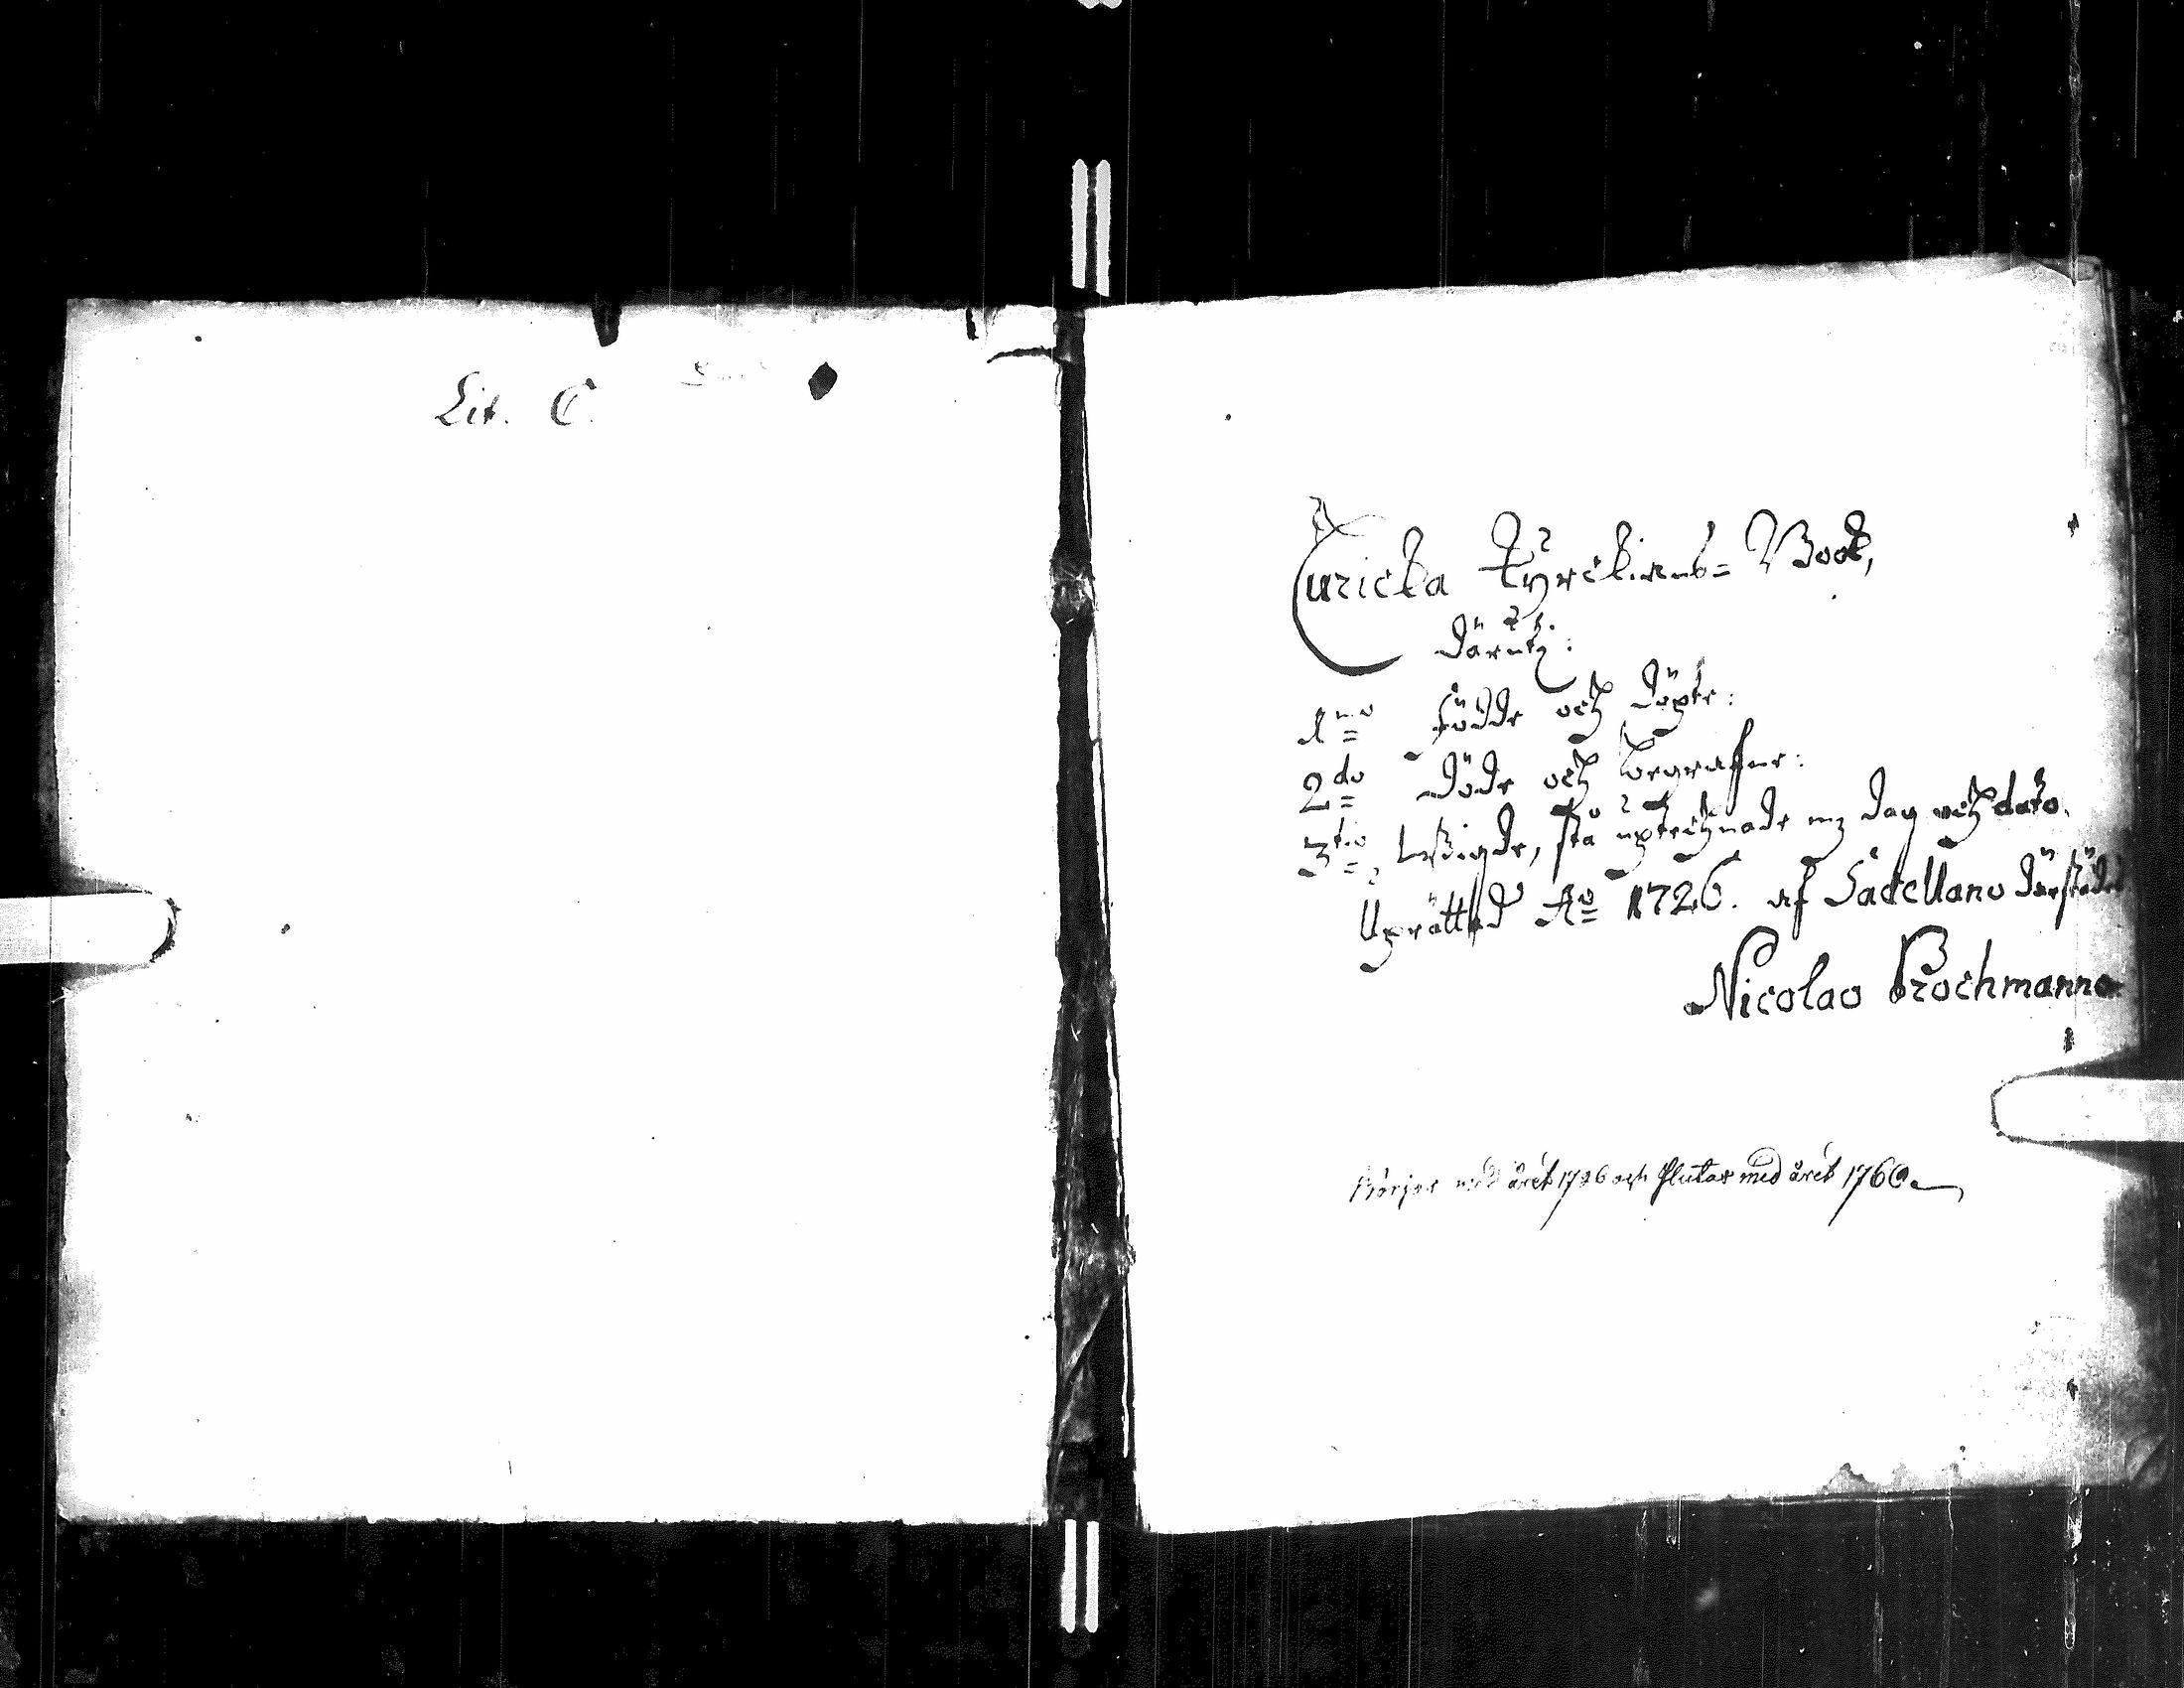 Lit. C.
Curicka Kyrckians= Book,
därutj:
1mo födde och döpte:
2do döde och begrafne:
3tio wigde, sta uptechnade mz dag och dato.
Uprättad Ao 1726. af Sacellano därstädes
Nicolao Brochmanno
Börjar med året 1726 och slutar med året 1760.